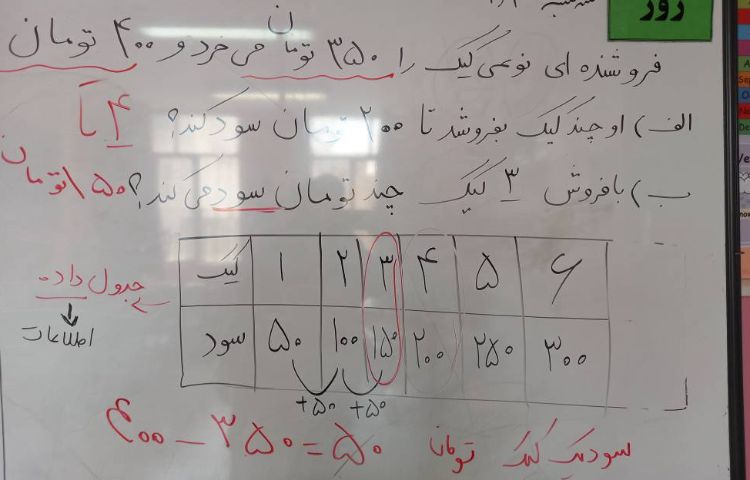 روز
فروشنده ای نوعی کیک را ۳۵۰ تومان می خرد و ۴۰۰ تومان
الف) او چند کیک بفروشد تا ۲۰۰ تومان سود کند؟ ۴ تا
ب) با فروش ۳ کیک چند تومان سود می کند؟ ۱۵۰ تومان
جدول داده
اطلاعات
کیک ۱ ۲ ۳ ۴ ۵ ۶
سود ۵۰ ۱۰۰ ۱۵۰ ۲۰۰ ۲۵۰ ۳۰۰
+۵۰ +۵۰
۴۰۰ - ۳۵۰ = ۵۰ تومان سود یک کیک